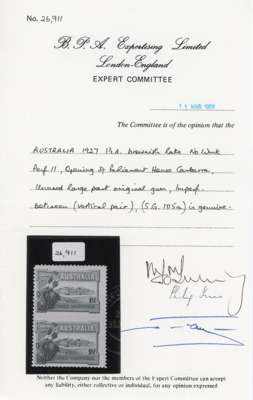 No. 26,911
B. P. A. Expertising Limited
London-England
EXPERT COMMITTEE
11 MAR 198
The Committee is of the opinion that the
AUSTRALIA 1927 1½d. brownish lake No Wmk
Perf 11, Opening of Parliament House Canberra,
Unused large part original gum, Imperf.
Between (vertical pair), (S.G. 105a) is genuine.
26,911
AUSTRALIA
AUSTRALIA
Neither the Company nor the members of the Expert Committee can accept
any liability, either collective or individual, for any opinion expressed